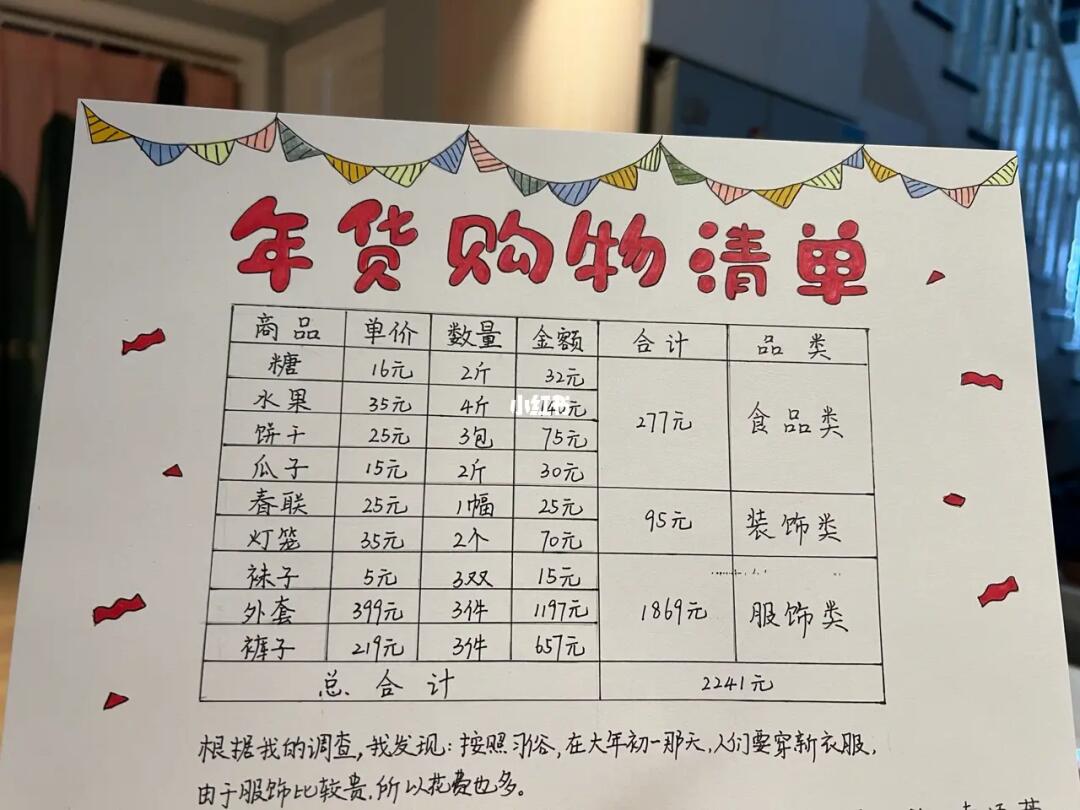 年货购物清单
商品 单价 数量 金额 合计 品类
糖 16元 2斤 32元
水果 35元 4斤 140元
饼干 25元 3包 75元
瓜子 15元 2斤 30元
277元 食品类
春联 25元 1幅 25元
灯笼 35元 2个 70元
95元 装饰类
袜子 5元 3双 15元
外套 399元 3件 1197元
裤子 219元 3件 657元
1869元 服饰类
总合计 2241元
小红书
根据我的调查,我发现:按照习俗,在大年初一那天,人们要穿新衣服,
由于服饰比较贵,所以花费也多。